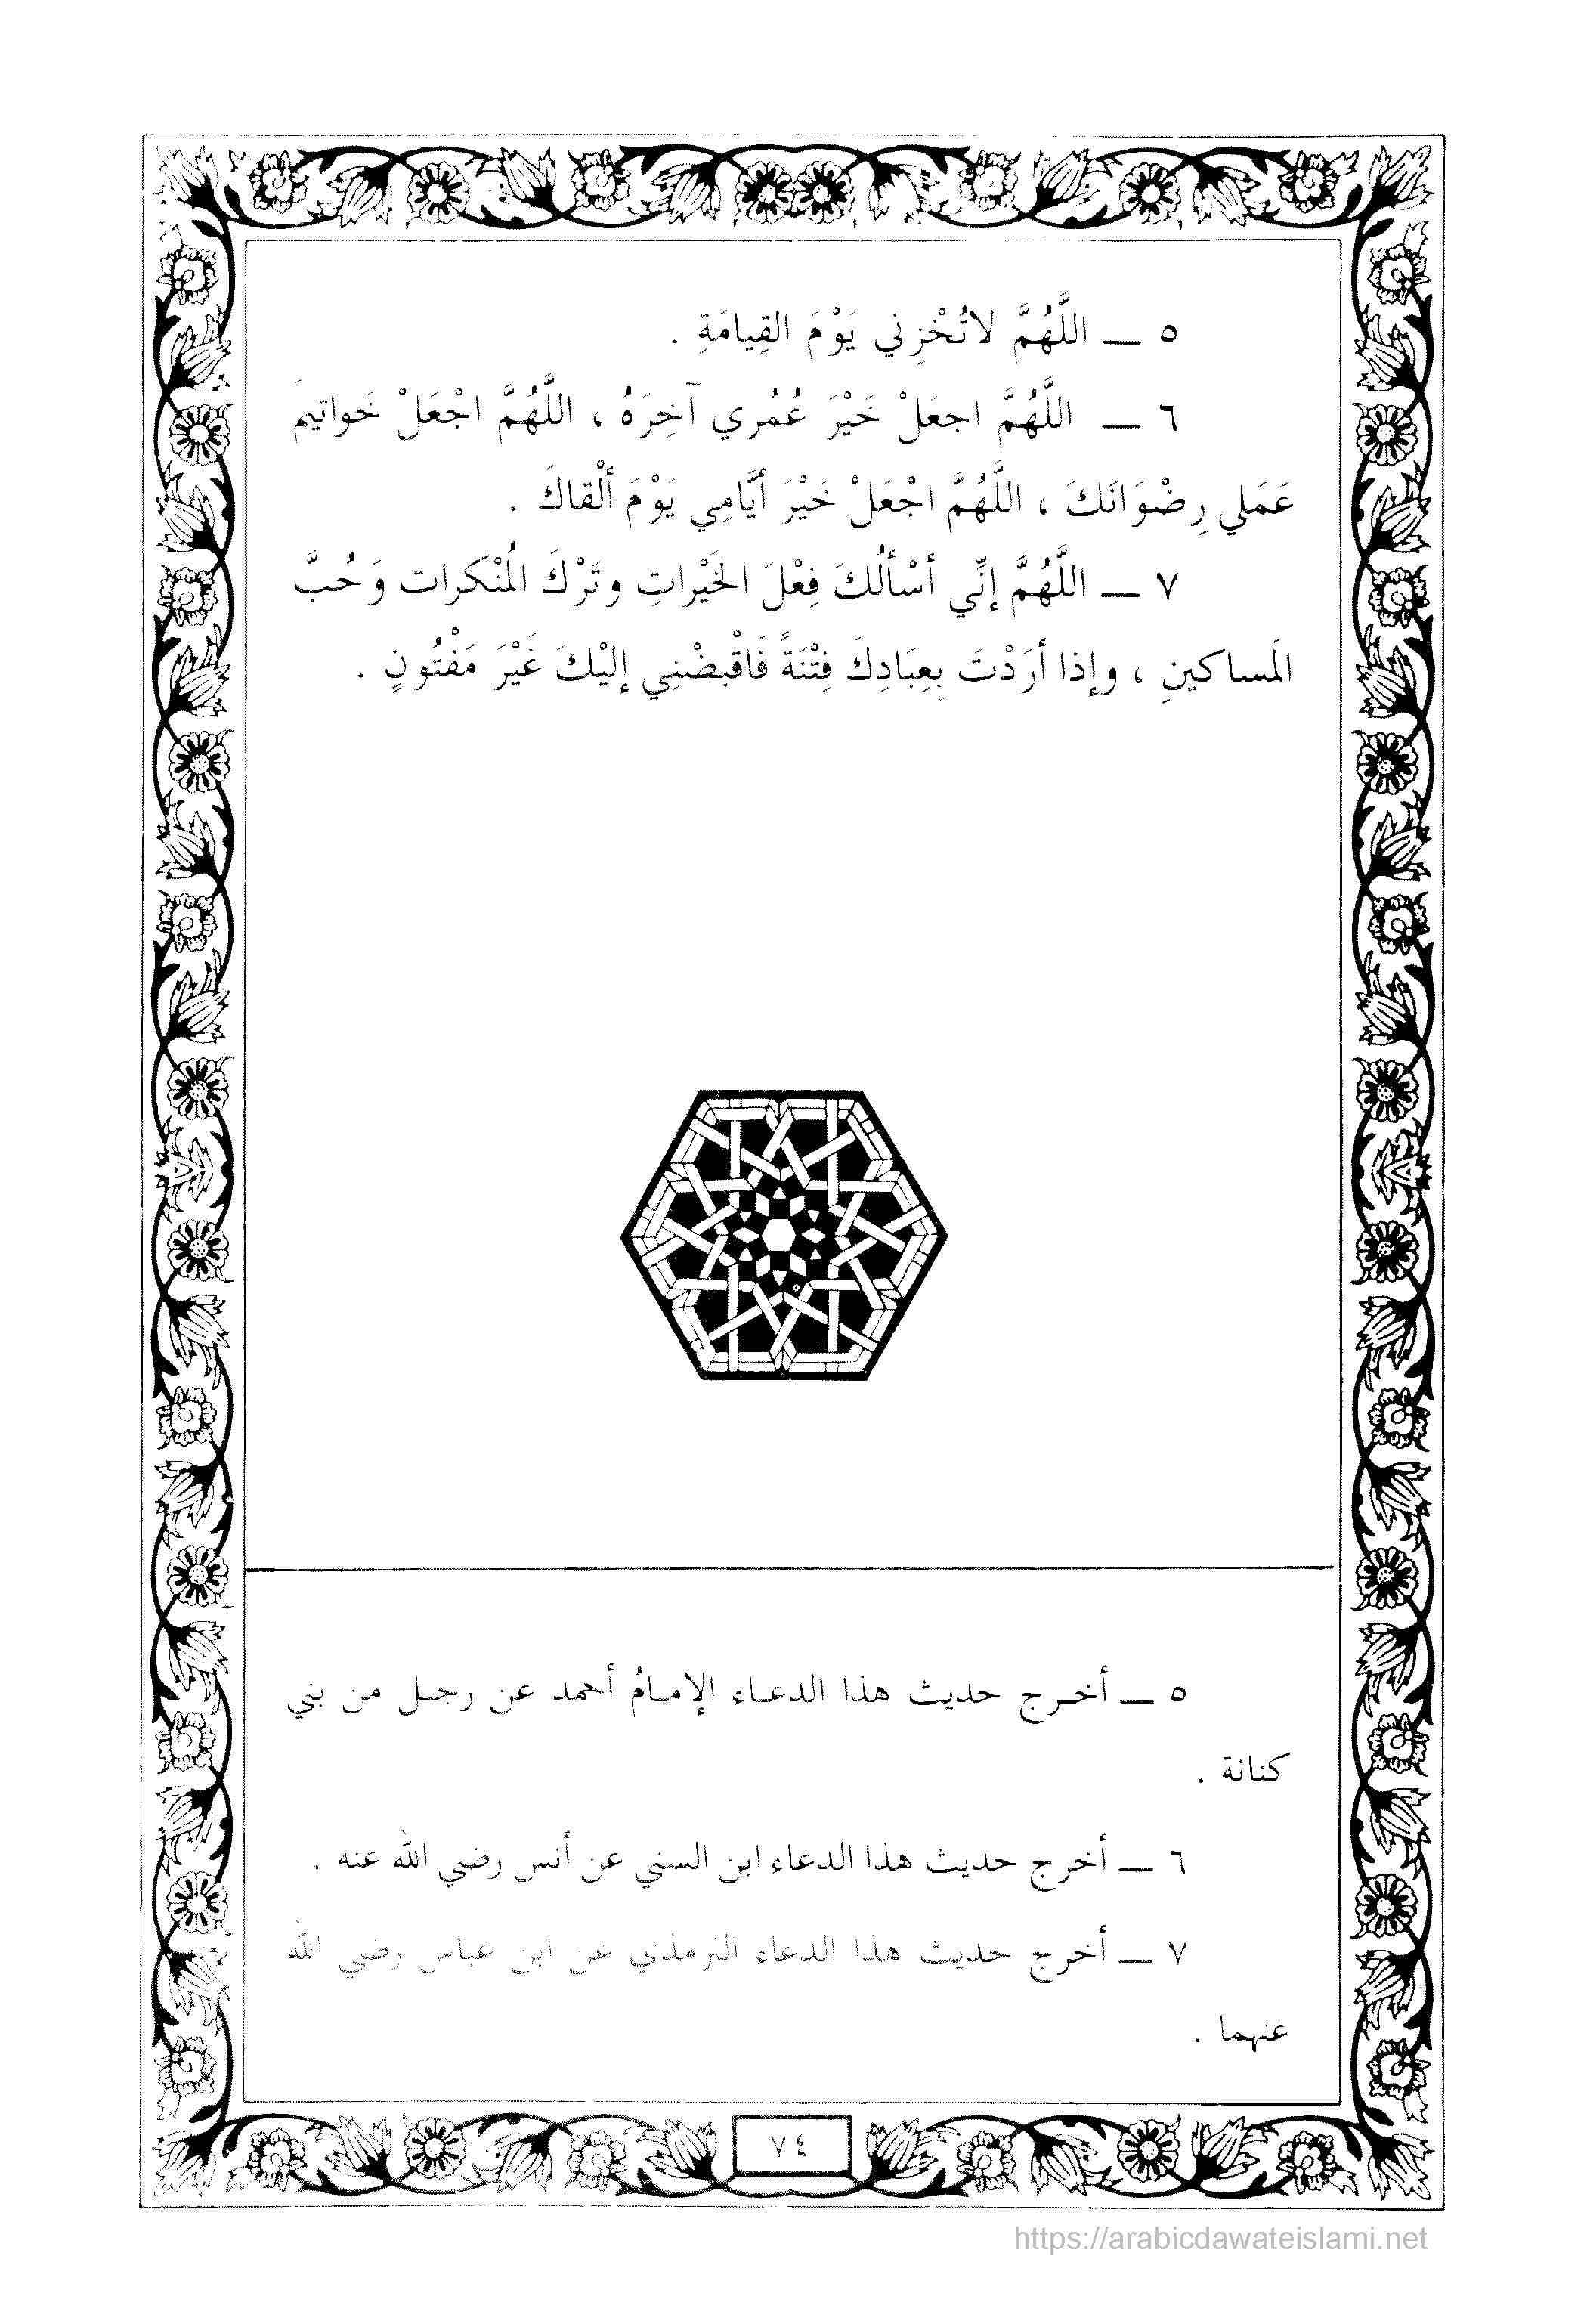 ٥ ـ اللَّهُمَّ لاتُخْزِني يَوْمَ القِيامَةِ .
٦ ـ اللَّهُمَّ اجعَلْ خَيْرَ عُمُري آخِرَهُ ، اللَّهُمَّ اجْعَلْ خَواتيمَ
عَمَلي رِضْوَانَكَ ، اللَّهُمَّ اجْعَلْ خَيْرَ أيَّامِي يَوْمَ ألْقاكَ .
٧ ـ اللَّهُمَّ إنِّي أسْألُكَ فِعْلَ الخَيْراتِ وتَرْكَ المُنْكرات وَحُبَّ
المَساكينِ ، وإذا أرَدْتَ بِعِبَادِكَ فِتْنَةً فَاقْبضْنِي إليْكَ غَيْرَ مَفْتُونٍ .
٥ ـ أخرج حديث هذا الدعاء الإمامُ أحمد عن رجل من بني
كنانة .
٦ ـ أخرج حديث هذا الدعاء ابن السني عن أنس رضي الله عنه .
٧ ـ أخرج حديث هذا الدعاء الترمذي عن ابن عباس رضي الله
عنهما .
٧٤
https://arabicdawateislami.net